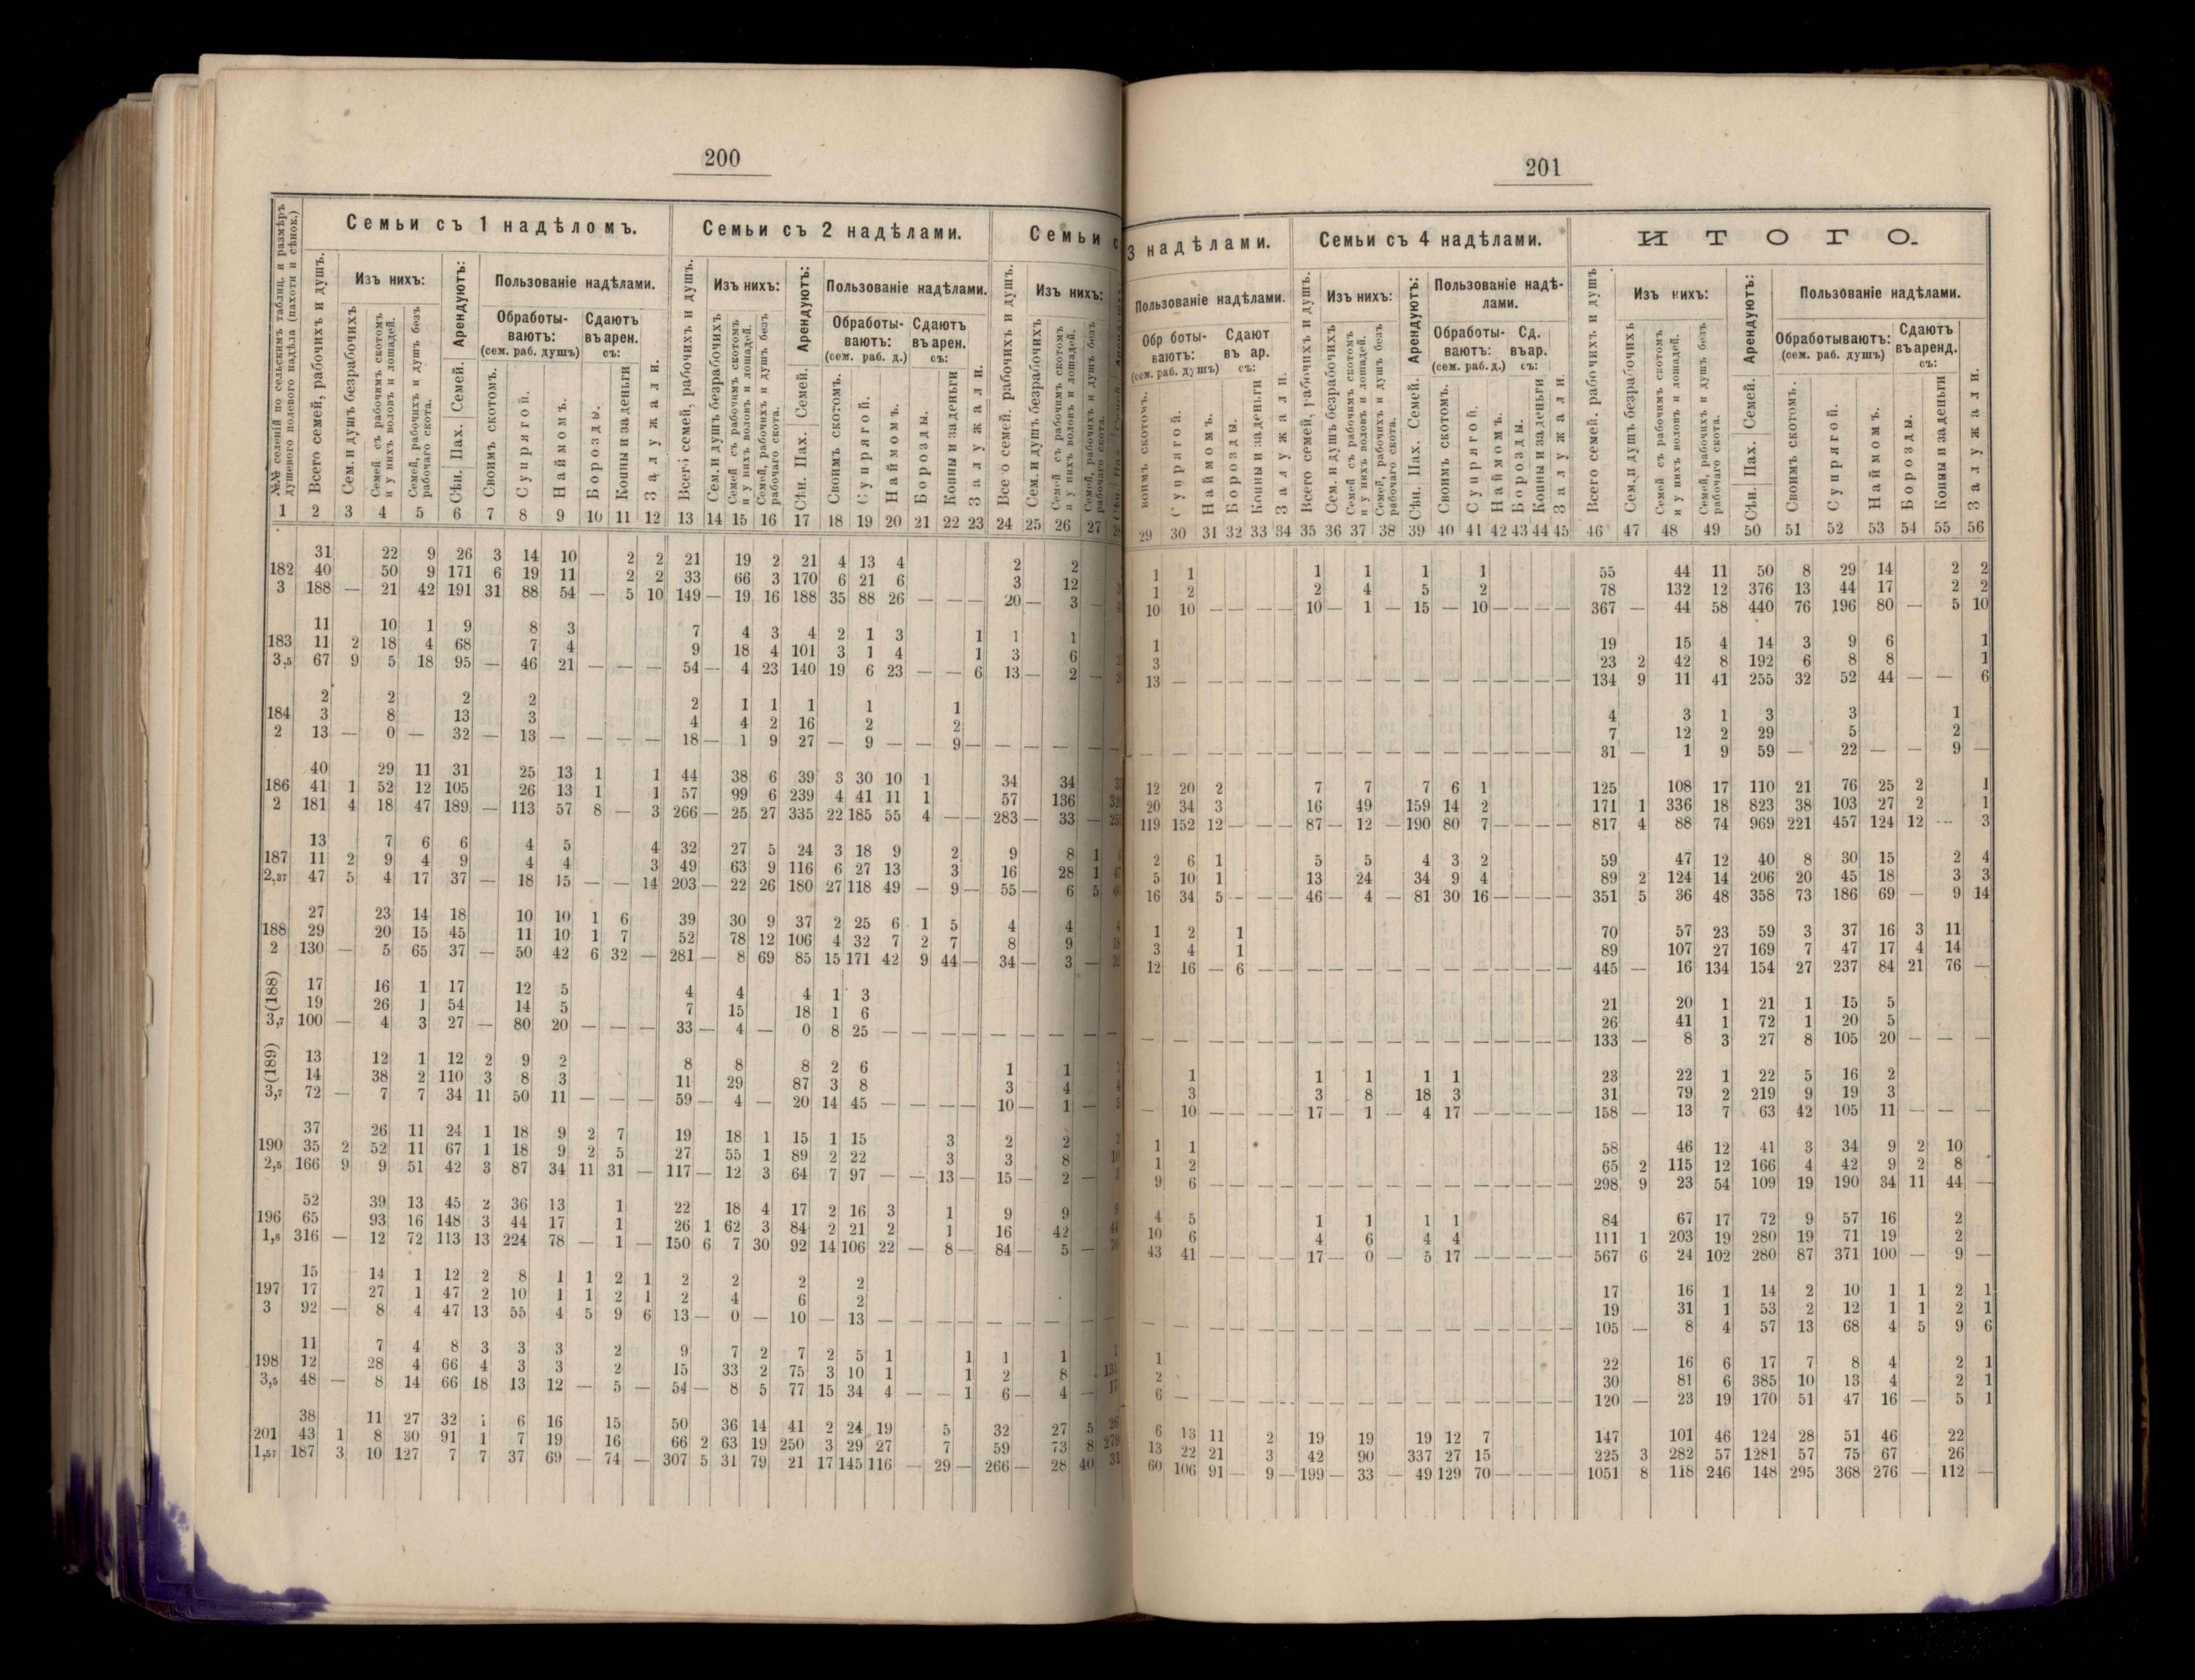 200
Семьи съ 1 надѣломъ.
Семьи съ 2 надѣлами.
Семьи с
№№ селеній по сельскимъ таблиц. и размѣръ душевого полевого надѣла (пахоти и сѣнок.)
Всего семей, рабочихъ и душъ.
Изъ нихъ:
Сем. и душъ безрабочихъ
Семей съ рабочимъ скотомъ и у нихъ воловъ и лошадей.
Семей, рабочихъ и душъ безъ рабочаго скота.
Арендуютъ:
Сѣн. Пах. Семей.
Пользованіе надѣлами.
Обработываютъ: (сем. раб. душъ)
Сдаютъ въ арен. съ:
Своимъ скотомъ.
Супрягой.
Наймомъ.
Борозды.
Копны и за деньги
Залужали.
Всего семей, рабочихъ и душъ.
Изъ нихъ:
Сем. и душъ безрабочихъ
Семей съ рабочимъ скотомъ и у нихъ воловъ и лошадей.
Семей, рабочихъ и душъ безъ рабочаго скота.
Арендуютъ:
Сѣн. Пах. Семей.
Пользованіе надѣлами.
Обработываютъ: (сем. раб. д.)
Сдаютъ въ арен. съ:
Своимъ скотомъ.
Супрягой.
Наймомъ.
Борозды.
Копны и за деньги
Залужали.
Все о семей. рабочихъ и душъ.
Изъ нихъ:
Сем. и душъ безрабочихъ
Семей съ рабочимъ скотомъ и у нихъ воловъ и лошадей.
Семей, рабочихъ и душъ безъ рабочаго скота.
1 2 3 4 5 6 7 8 9 10 11 12 13 14 15 16 17 18 19 20 21 22 23 24 25 26 27
31 22 9 26 3 14 10 2 2 21 19 2 21 4 13 4 2 2
182 40 50 9 171 6 19 11 2 2 33 66 3 170 6 21 6 3 12
3 188 — 21 42 191 31 88 54 — 5 10 149 — 19 16 188 35 88 26 — — — 20 — 3 —
11 10 1 9 8 3 7 4 3 4 2 1 3 1 1 1
183 11 2 18 4 68 7 4 9 18 4 101 3 1 4 1 3 6
3,5 67 9 5 18 95 — 46 21 — — — 54 — 4 23 140 19 6 23 — — 6 13 — 2 —
2 2 2 2 2 1 1 1 1 1
184 3 8 13 3 4 4 2 16 2 2
2 13 — 0 — 32 — 13 — — — — 18 — 1 9 27 — 9 — — 9 — — — — —
40 29 11 31 25 13 1 1 44 38 6 39 3 30 10 1 34 34
186 41 1 52 12 105 26 13 1 1 57 99 6 239 4 41 11 1 57 136
2 181 4 18 47 189 — 113 57 8 — 3 266 — 25 27 335 22 185 55 4 — — 283 — 33 —
13 7 6 6 4 5 4 32 27 5 24 3 18 9 2 9 8 1
187 11 2 9 4 9 4 4 3 49 63 9 116 6 27 13 3 16 28 1
2,37 47 5 4 17 37 — 18 15 — — 14 203 — 22 26 180 27 118 49 — 9 — 55 — 6 5
27 23 14 18 10 10 1 6 39 30 9 37 2 25 6 1 5 4 4
188 29 20 15 45 11 10 1 7 52 78 12 106 4 32 7 2 7 8 9
2 130 — 5 65 37 — 50 42 6 32 — 281 — 8 69 85 15 171 42 9 44 — 34 — 3 —
17 16 1 17 12 5 4 4 4 1 3
(188) 19 26 1 54 14 5 7 15 18 1 6
3,7 100 — 4 3 27 — 80 20 — — — 33 — 4 — 0 8 25 — — — — — — — —
13 12 1 12 2 9 2 8 8 8 2 6 1 1
(189) 14 38 2 110 3 8 3 11 29 87 3 8 3 4
3,7 72 — 7 7 34 11 50 11 — — — 59 — 4 — 20 14 45 — — — — 10 — 1 —
37 26 11 24 1 18 9 2 7 19 18 1 15 1 15 3 2 2
190 35 2 52 11 67 1 18 9 2 5 27 55 1 89 2 22 3 3 8
2,5 166 9 9 51 42 3 87 34 11 31 — 117 — 12 3 64 7 97 — — 13 — 15 — 2 —
52 39 13 45 2 36 13 1 22 18 4 17 2 16 3 1 9 9
196 65 93 16 148 3 44 17 1 26 1 62 3 84 2 21 2 1 16 42
1,8 316 — 12 72 113 13 224 78 — 1 — 150 6 7 30 92 14 106 22 — 8 — 84 — 5 —
15 14 1 12 2 8 1 1 2 1 2 2 2 2
197 17 27 1 47 2 10 1 1 2 1 2 4 6 2
3 92 — 8 4 47 13 55 4 5 9 6 13 — 0 — 10 — 13 — — — — — — — —
11 7 4 8 3 3 3 2 9 7 2 7 2 5 1 1 1 1
198 12 28 4 66 4 3 3 2 15 33 2 75 3 10 1 1 2 8
3,5 48 — 8 14 66 18 13 12 — 5 — 54 — 8 5 77 15 34 4 — — 1 6 — 4 —
38 11 27 32 1 6 16 15 50 36 14 41 2 24 19 5 32 27 5
201 43 1 8 30 91 1 7 19 16 66 2 63 19 250 3 29 27 7 59 73 8
1,57 187 3 10 127 7 7 37 69 — 74 — 307 5 31 79 21 17 145 116 — 29 — 266 — 28 40
201
3 надѣлами.
Семьи съ 4 надѣлами.
ИТОГО.
Пользованіе надѣлами.
Обр боты- ваютъ: (сем. раб. душъ)
Сдают въ ар. съ:
воимъ скотомъ.
Супрягой.
Наймомъ.
Борозды.
Копны и за деньги
Залужали.
Всего семей, рабочихъ и душъ.
Изъ нихъ:
Сем. и душъ безрабочихъ
Семей съ рабочимъ скотомъ и у нихъ воловъ и лошадей.
Семей, рабочихъ и душъ безъ рабочаго скота.
Арендуютъ:
Сѣн. Пах. Семей.
Пользованіе надѣ- лами.
Обработы- ваютъ: (сем. раб. д.)
Сд. въ ар. съ:
Своимъ скотомъ.
Супрягой.
Наймомъ.
Борозды.
Копны и за деньги
Залужали.
Всего семей. рабочихъ и душъ
Изъ нихъ:
Сем. и душъ безрабочихъ
Семей съ рабочимъ скотомъ и у нихъ воловъ и лошадей.
Семей, рабочихъ и душъ безъ рабочаго скота.
Арендуютъ:
Сѣн. Пах. Семей.
Пользованіе надѣлами.
Обработываютъ: (сем. раб. душъ)
Сдаютъ въ аренд. съ:
Своимъ скотомъ.
Супрягой.
Наймомъ.
Борозды.
Копны и за деньги
Залужали.
29 30 31 32 33 34 35 36 37 38 39 40 41 42 43 44 45 46 47 48 49 50 51 52 53 54 55 56
1 1 1 1 1 1 55 44 11 50 8 29 14 2 2
1 2 2 4 5 2 78 132 12 376 13 44 17 2 2
10 10 — — — — 10 — 1 — 15 — 10 — — — — 367 — 44 58 440 76 196 80 — 5 10
1 19 15 4 14 3 9 6 1
3 23 2 42 8 192 6 8 8 1
13 — — — — — — — — — — — — — — — — 134 9 11 41 255 32 52 44 — — 6
4 3 1 3 3 1
7 12 2 29 5 2
— — — — — — — — — — — — — — — — — 31 — 1 9 59 — 22 — — 9 —
12 20 2 7 7 7 6 1 125 108 17 110 21 76 25 2 1
20 34 3 16 49 159 14 2 171 1 336 18 823 38 103 27 2 1
119 152 12 — — — 87 — 12 — 190 80 7 — — — — 817 4 88 74 969 221 457 124 12 — 3
2 6 1 5 5 4 3 2 59 47 12 40 8 30 15 2 4
5 10 1 13 24 34 9 4 89 2 124 14 206 20 45 18 3 3
16 34 5 — — — 46 — 4 — 81 30 16 — — — — 351 5 36 48 358 73 186 69 — 9 14
1 2 1 70 57 23 59 3 37 16 3 11
3 4 1 89 107 27 169 7 47 17 4 14
12 16 — 6 — — — — — — — — — — — — — 445 — 16 134 154 27 237 84 21 76 —
21 20 1 21 1 15 5
26 41 1 72 1 20 5
— — — — — — — — — — — — — — — — — 133 — 8 3 27 8 105 20 — — —
1 1 1 1 1 23 22 1 22 5 16 2
3 3 8 18 3 31 79 2 219 9 19 3
— 10 — — — — 17 — 1 — 4 17 — — — — — 158 — 13 7 63 42 105 11 — — —
1 1 58 46 12 41 3 34 9 2 10
1 2 65 2 115 12 166 4 42 9 2 8
9 6 — — — — — — — — — — — — — — — 298 9 23 54 109 19 190 34 11 44 —
4 5 1 1 1 1 84 67 17 72 9 57 16 2
10 6 4 6 4 4 111 1 203 19 280 19 71 19 2
43 41 — — — — 17 — 0 — 5 17 — — — — — 567 6 24 102 280 87 371 100 — 9 —
17 16 1 14 2 10 1 1 2 1
19 31 1 53 2 12 1 1 2 1
— — — — — — — — — — — — — — — — — 105 — 8 4 57 13 68 4 5 9 6
1 22 16 6 17 7 8 4 2 1
2 30 81 6 385 10 13 4 2 1
6 — — — — — — — — — — — — — — — — 120 — 23 19 170 51 47 16 — 5 1
6 13 11 2 19 19 19 12 7 147 101 46 124 28 51 46 22
13 22 21 3 42 90 337 27 15 225 3 282 57 1281 57 75 67 26
60 106 91 — 9 — 199 — 33 — 49 129 70 — — — — 1051 8 118 246 148 295 368 276 — 112 —